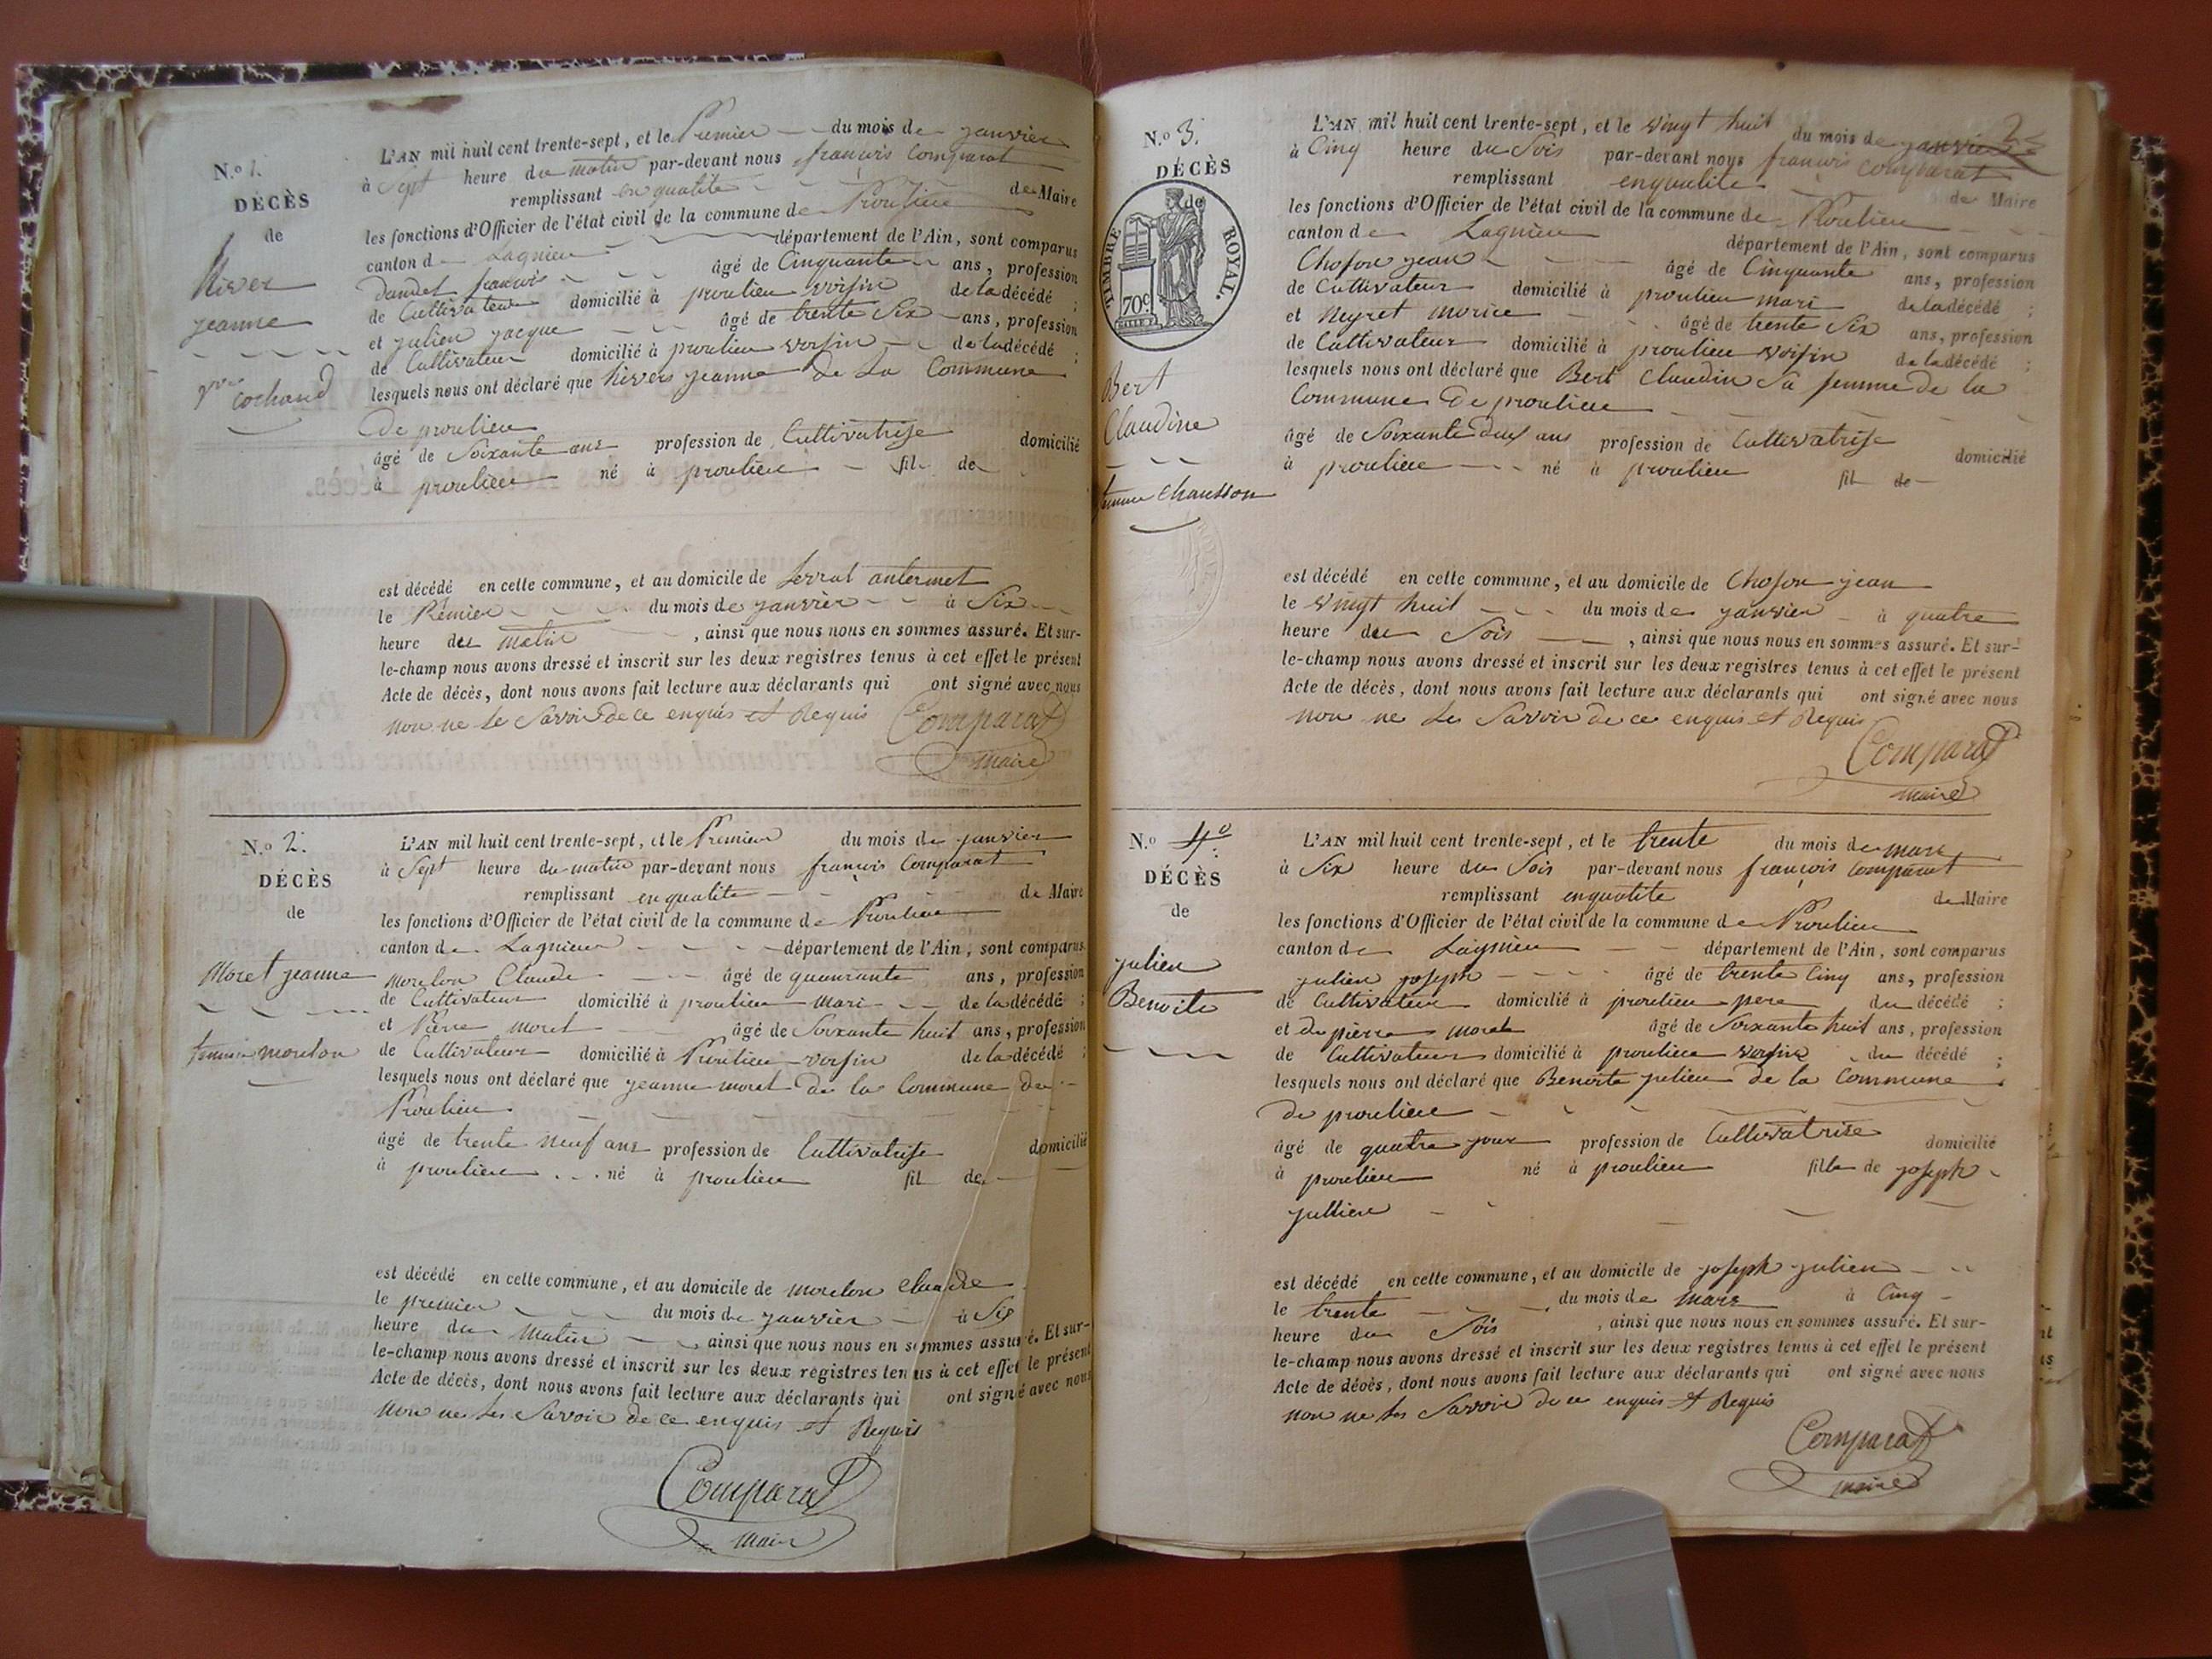 N.o 1.
DÉCÈS
de
River
jeanne
cochand
L'AN mil huit cent trente-sept, et le Premier du mois de janvier
à Sept heure du matin par-devant nous françois Comparat
remplissant en qualité de Maire
les fonctions d'Officier de l'état civil de la commune de Proulieu
canton de Lagnieu département de l'Ain, sont comparus
françois âgé de Cinquante ans, profession
de Cultivateur domicilié à proulieu voisin de la décédé ;
et julien jacque âgé de trente Six ans, profession
de Cultivateur domicilié à proulieu voisin de la décédé ;
lesquels nous ont déclaré que jeanne de La Commune
De proulieu
âgé de Soixante ans profession de Cultivatrise domicilié
à proulieu né à proulieu fil de
est décédé en cette commune, et au domicile de antermet
le Premier du mois de janvier à Six
heure du matin , ainsi que nous nous en sommes assuré. Et sur-
le-champ nous avons dressé et inscrit sur les deux registres tenus à cet effet le présent
Acte de décès, dont nous avons fait lecture aux déclarants qui ont signé avec nous
non ne le Savoir de ce enquis et Requis Comparat
maire
N.o 2.
DÉCÈS
de
Moret jeanne
femme moulon
L'AN mil huit cent trente-sept, et le Premier du mois de janvier
à Sept heure du matin par-devant nous françois Comparat
remplissant en qualité de Maire
les fonctions d'Officier de l'état civil de la commune de Proulieu
canton de Lagnieu département de l'Ain, sont comparus
moulon Claude âgé de quarante ans, profession
de Cultivateur domicilié à proulieu mari de la décédé ;
et Pierre moret âgé de Soixante huit ans, profession
de Cultivateur domicilié à Proulieu voisin de la décédé ;
lesquels nous ont déclaré que jeanne moret de la Commune de
Proulieu
âgé de trente neuf ans profession de Cultivatrise domicilié
à proulieu né à proulieu fil de
est décédé en cette commune, et au domicile de moulon Claude
le premier du mois de janvier à Six
heure du Matin , ainsi que nous nous en sommes assuré. Et sur-
le-champ nous avons dressé et inscrit sur les deux registres tenus à cet effet le présent
Acte de décès, dont nous avons fait lecture aux déclarants qui ont signé avec nous
non ne les Savoir de ce enquis et Requis
Comparat
maire
2
N.o 3.
DÉCÈS
de
TIMBRE ROYAL.
70c.
Bert
Claudine
femme Chausson
L'AN mil huit cent trente-sept, et le vingt huit du mois de janvier
à Cinq heure du Soir par-devant nous françois comparat
remplissant en qualité de Maire
les fonctions d'Officier de l'état civil de la commune de Proulieu
canton de Lagnieu département de l'Ain, sont comparus
Choson jean âgé de Cinquante ans, profession
de Cultivateur domicilié à proulieu mari de la décédé ;
et Neyret morice âgé de trente Six ans, profession
de Cultivateur domicilié à proulieu voisin de la décédé ;
lesquels nous ont déclaré que Bert Claudin Sa femme de la
Commune De proulieu
âgé de Soixante deux ans profession de Cultivatrise domicilié
à proulieu né à proulieu fil de
est décédé en cette commune, et au domicile de Choson jean
le vingt huit du mois de janvier à quatre
heure du Soir , ainsi que nous nous en sommes assuré. Et sur-
le-champ nous avons dressé et inscrit sur les deux registres tenus à cet effet le présent
Acte de décès, dont nous avons fait lecture aux déclarants qui ont signé avec nous
non ne les Savoir de ce enquis et Requis
Comparat
maire
N.o 4.
DÉCÈS
de
julien
Benoite
L'AN mil huit cent trente-sept, et le trente du mois de mars
à Six heure du Soir par-devant nous françois Comparat
remplissant en qualité de Maire
les fonctions d'Officier de l'état civil de la commune de Proulieu
canton de Lagnieu département de l'Ain, sont comparus
julien joseph âgé de trente Cinq ans, profession
de Cultivateur domicilié à proulieu pere du décédé ;
et de pierre moret âgé de Soixante huit ans, profession
de Cultivateur domicilié à proulieu voisin du décédé ;
lesquels nous ont déclaré que Benoite julien de la Commune
de proulieu
âgé de quatre jour profession de Cultivatrise domicilié
à proulieu né à proulieu fille de joseph
jullien
est décédé en cette commune, et au domicile de joseph julien
le trente du mois de mars à Cinq
heure du Soir , ainsi que nous nous en sommes assuré. Et sur-
le-champ nous avons dressé et inscrit sur les deux registres tenus à cet effet le présent
Acte de décès, dont nous avons fait lecture aux déclarants qui ont signé avec nous
non ne les Savoir de ce enquis et Requis
Comparat
maire